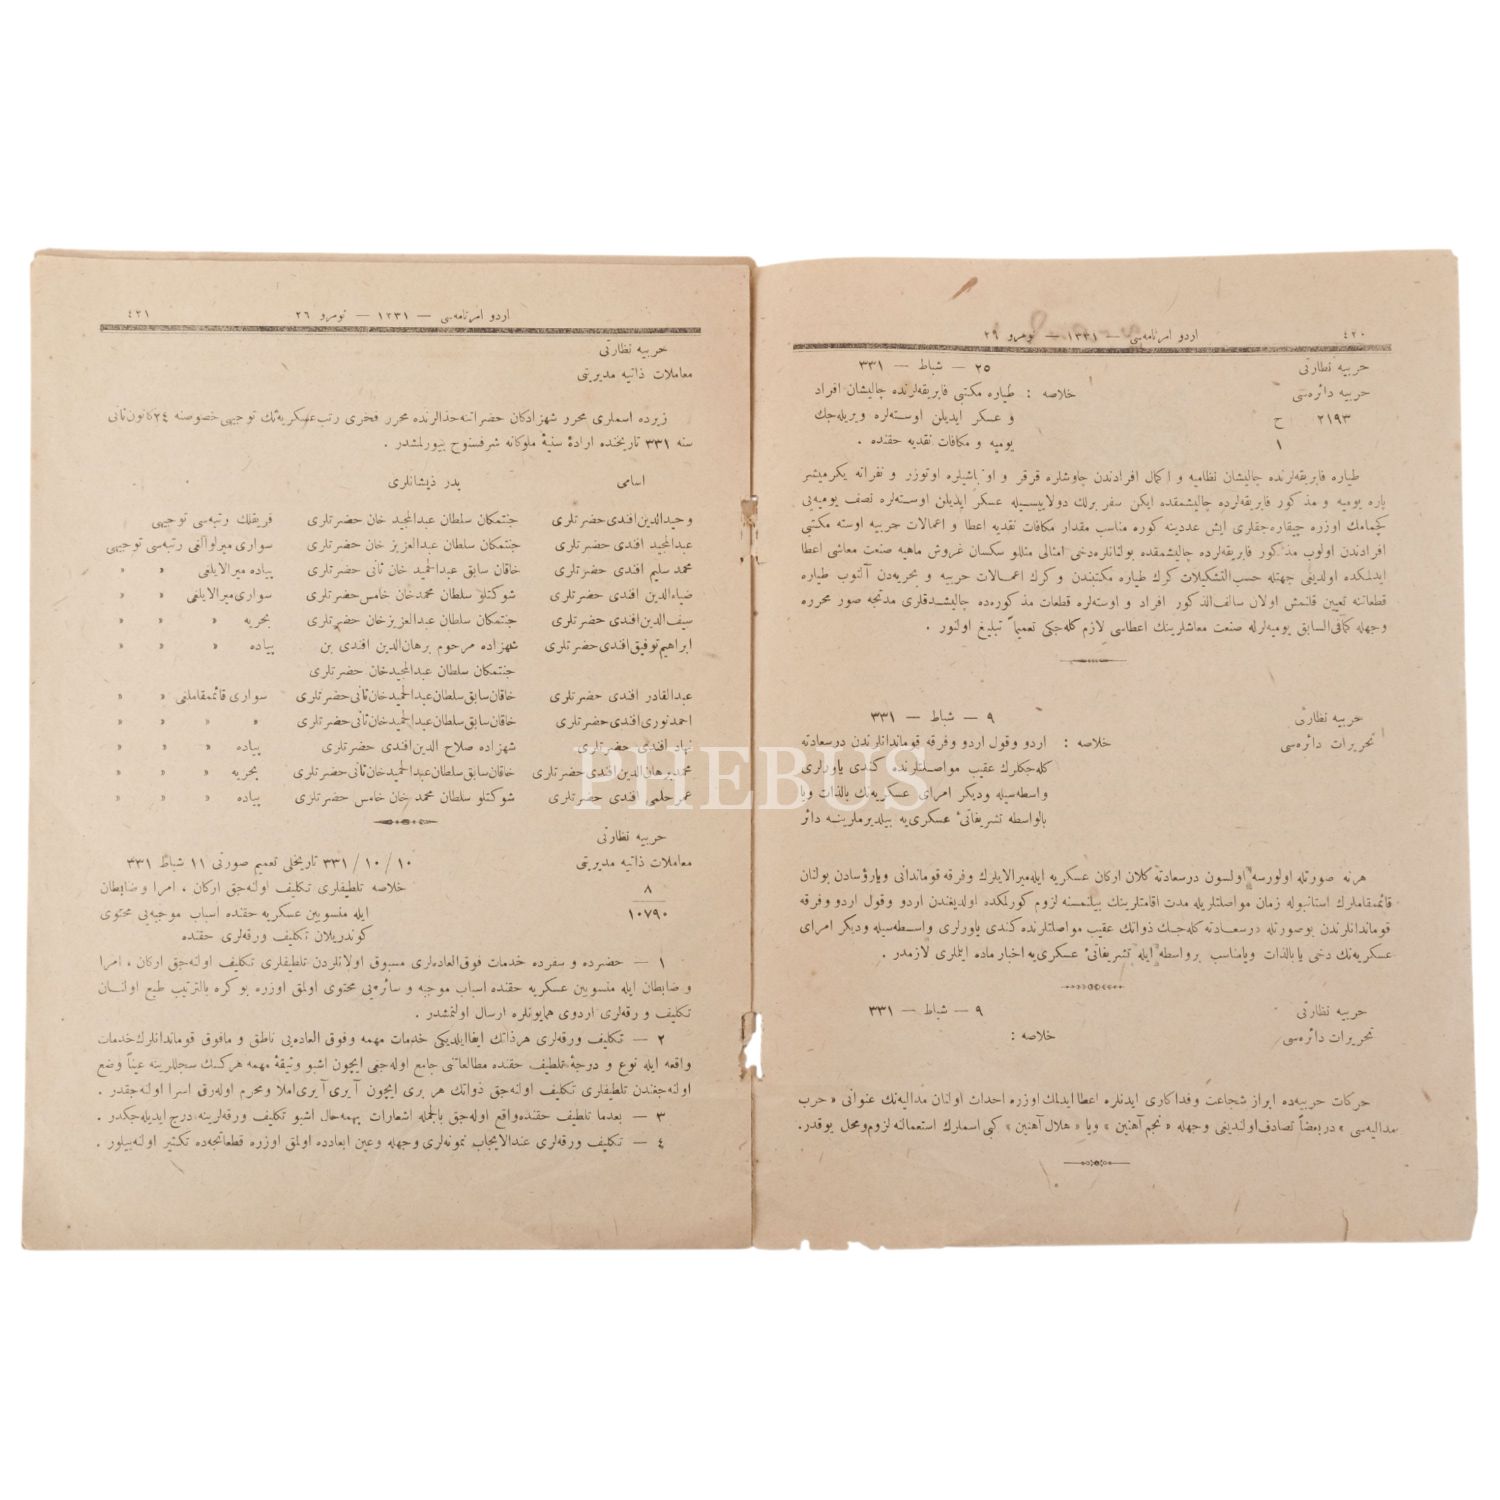 ٤٢٠
اردو امرنامه‌سی — ١٣٣١ — نومرو ٢٩
حربیه نظارتی
٢٥ — شباط — ٣٣١
حربیه دائره‌سی
خلاصه : طیاره مکتبی فابریقه‌لرنده چالیشان افراد
٢١٩٣ ح
و عسکر ایدیلن اوسته‌لره ویریله‌جك
١
یومیه و مکافات نقدیه حقنده .
طیاره فابریقه‌لرنده چالیشان نظامیه و اکمال افرادندن چاوشلره قرقر و اونباشیلره اوتوزر و نفرانه یکرمیشر
پاره یومیه و مذکور فابریقه‌لرده چالیشمقده ایکن سفربرلك دولاییسیله عسکر ایدیلن اوسته‌لره نصف یومیه‌یی
کچمامك اوزره چیقاره‌جقلری ایش عددینه کوره مناسب مقدار مکافات نقدیه اعطا و اعمالات حربیه اوسته مکتبی
افرادندن اولوب مذکور فابریقه‌لرده چالیشمقده بولنانلره‌دخی امثالی مثللو سکسان غروش ماهیه صنعت معاشی اعطا
ایدلمکده اولدیغی جهتله حسب‌التشکیلات کرك طیاره مکتبندن و کرك اعمالات حربیه و بحریه‌دن آلنوب طیاره
قطعاتنه تعیین قلنمش اولان سالف‌الذکور افراد و اوسته‌لره قطعات مذکوره‌ده چالیشدقلری مدتجه صور محرره
وجهله کمافی‌السابق یومیه‌لرله صنعت معاشلرینك اعطاسی لازم کله‌جکی تعمیماً تبلیغ اولنور .
حربیه نظارتی
٩ — شباط — ٣٣١
تحریرات دائره‌سی
خلاصه : اردو وقول اردو وفرقه قوماندانلرندن درسعادته
کله‌جکلرك عقیب مواصلتلرنده کندی یاورلری
واسطه‌سیله ودیکر امرای عسکریه‌نك بالذات ویا
بالواسطه تشریفاتئ عسکری‌یه بیلدیرملرینه دائر
هرنه صورتله اولورسه اولسون درسعادته کلان ارکان عسکریه ایله میرالایلرك وفرقه قوماندانی ویارؤسادن بولنان
قائممقاملرك استانبوله زمان مواصلتلریله مدت اقامتلرینك بیلنمسنه لزوم کورلمکده اولدیغندن اردو وقول اردو وفرقه
قوماندانلرندن بوصورتله درسعادته کله‌جك ذواتك عقیب مواصلتلرنده کندی یاورلری واسطه‌سیله ودیکر امرای
عسکریه‌نك دخی یابالذات ویامناسب برواسطه ایله تشریفاتئ عسکری‌یه اخبار ماده ایتملری لازمدر .
حربیه نظارتی
٩ — شباط — ٣٣١
تحریرات دائره‌سی
خلاصه :
حرکات حربیه‌ده ابراز شجاعت وفداکاری ایدنلره اعطا ایدلمك اوزره احداث اولنان مدالیه‌نك عنوانی « حرب
مدالیه‌سی » دربعضاً تصادف اولندیغی وجهله « نجم آهنین » ویا « هلال آهنین » کبی اسملرك استعمالنه لزوم ومحل یوقدر.
اردو امرنامه‌سی — ١٣٣١ — نومرو ٢٦
٤٢١
حربیه نظارتی
معاملات ذاتیه مدیریتی
زیرده اسملری محرر شهزادکان حضراتنه حذالرنده محرر فخری رتب عسکریه‌نك توجیهی خصوصنه ٢٤ کانون ثانی
سنه ٣٣١ تاریخنده ارادۀ سنیۀ ملوکانه شرفسنوح بیورلمشدر .
اسامی
پدر ذیشانلری
وحیدالدین افندی حضرتلری جنتمکان سلطان عبدالمجید خان حضرتلری فریقلك رتبه‌سی توجیهی
عبدالمجید افندی حضرتلری جنتمکان سلطان عبدالعزیز خان حضرتلری سواری میرلوالغی رتبه‌سی توجیهی
محمد سلیم افندی حضرتلری خاقان سابق عبدالحمید خان ثانی حضرتلری پیاده میرالایلغی » »
ضیاءالدین افندی حضرتلری شوکتلو سلطان محمدخان خامس حضرتلری سواری میرالایلغی » »
سیف‌الدین افندی حضرتلری جنتمکان سلطان عبدالعزیزخان حضرتلری بحریه » » »
ابراهیم توفیق افندی حضرتلری شهزاده مرحوم برهان‌الدین افندی بن پیاده » » »
جنتمکان سلطان عبدالمجیدخان حضرتلری
عبدالقادر افندی حضرتلری خاقان سابق سلطان عبدالحمیدخان ثانی حضرتلری سواری قائممقاملغی » »
احمدنوری افندی حضرتلری خاقان سابق سلطان عبدالحمیدخان ثانی حضرتلری » » » »
نهاد افندی حضرتلری شهزاده صلاح الدین افندی حضرتلری پیاده » » »
محمدبرهان‌الدین افندی حضرتلری خاقان سابق سلطان عبدالحمیدخان ثانی حضرتلری بحریه » » »
عمرحلمی افندی حضرتلری شوکتلو سلطان محمد خان خامس حضرتلری پیاده » » »
حربیه نظارتی
معاملات ذاتیه مدیریتی
١٠ / ١٠ / ٣٣١ تاریخلی تعمیم صورتی ١١ شباط ٣٣١
٨
خلاصه تلطیفلری تکلیف اولنه‌جق ارکان ، امرا وضابطان
١٠٧٩٠
ایله منسوبین عسکریه حقنده اسباب موجبه‌یی محتوی
کوندریلان تکلیف ورقه‌لری حقنده
١ — حضرده و سفرده خدمات فوق‌العاده‌لری مسبوق اولانلردن تلطیفلری تکلیف اولنه‌جق ارکان ، امرا
و ضابطان ایله منسوبین عسکریه حقنده اسباب موجبه و سائره‌یی محتوی اولمق اوزره بوکره بالترتیب طبع اولنان
تکلیف و رقه‌لری اردوی همایونلره ارسال اولنمشدر .
٢ — تکلیف ورقه‌لری هرذاتك ایفاایلدیکی خدمات مهمه وفوق العاده‌یی ناطق و مافوق قوماندانلرك خدمات
واقعه ایله نوع و درجۀ تلطیف حقنده مطالعاتنی جامع اوله‌جغی ایچون اشبو وثیقۀ مهمه هرکسك سجللرینه عیناً وضع
اولنه‌جغندن تلطیفلری تکلیف اولنه‌جق ذواتك هر بری ایچون آیری آیری املا ومحرم اوله‌رق اسرا اولنه‌جقدر .
٣ — بعدما تلطیف حقنده واقع اوله‌جق بالجمله اشعارات بهمه‌حال اشبو تکلیف ورقه‌لرینه درج ایدیله‌جکدر .
٤ — تکلیف ورقه‌لری عندالایجاب نمونه‌لری وجهله وعین ابعادده اولمق اوزره قطعاتجه‌ده تکثیر اولنه‌بیلور .
PHEBUS